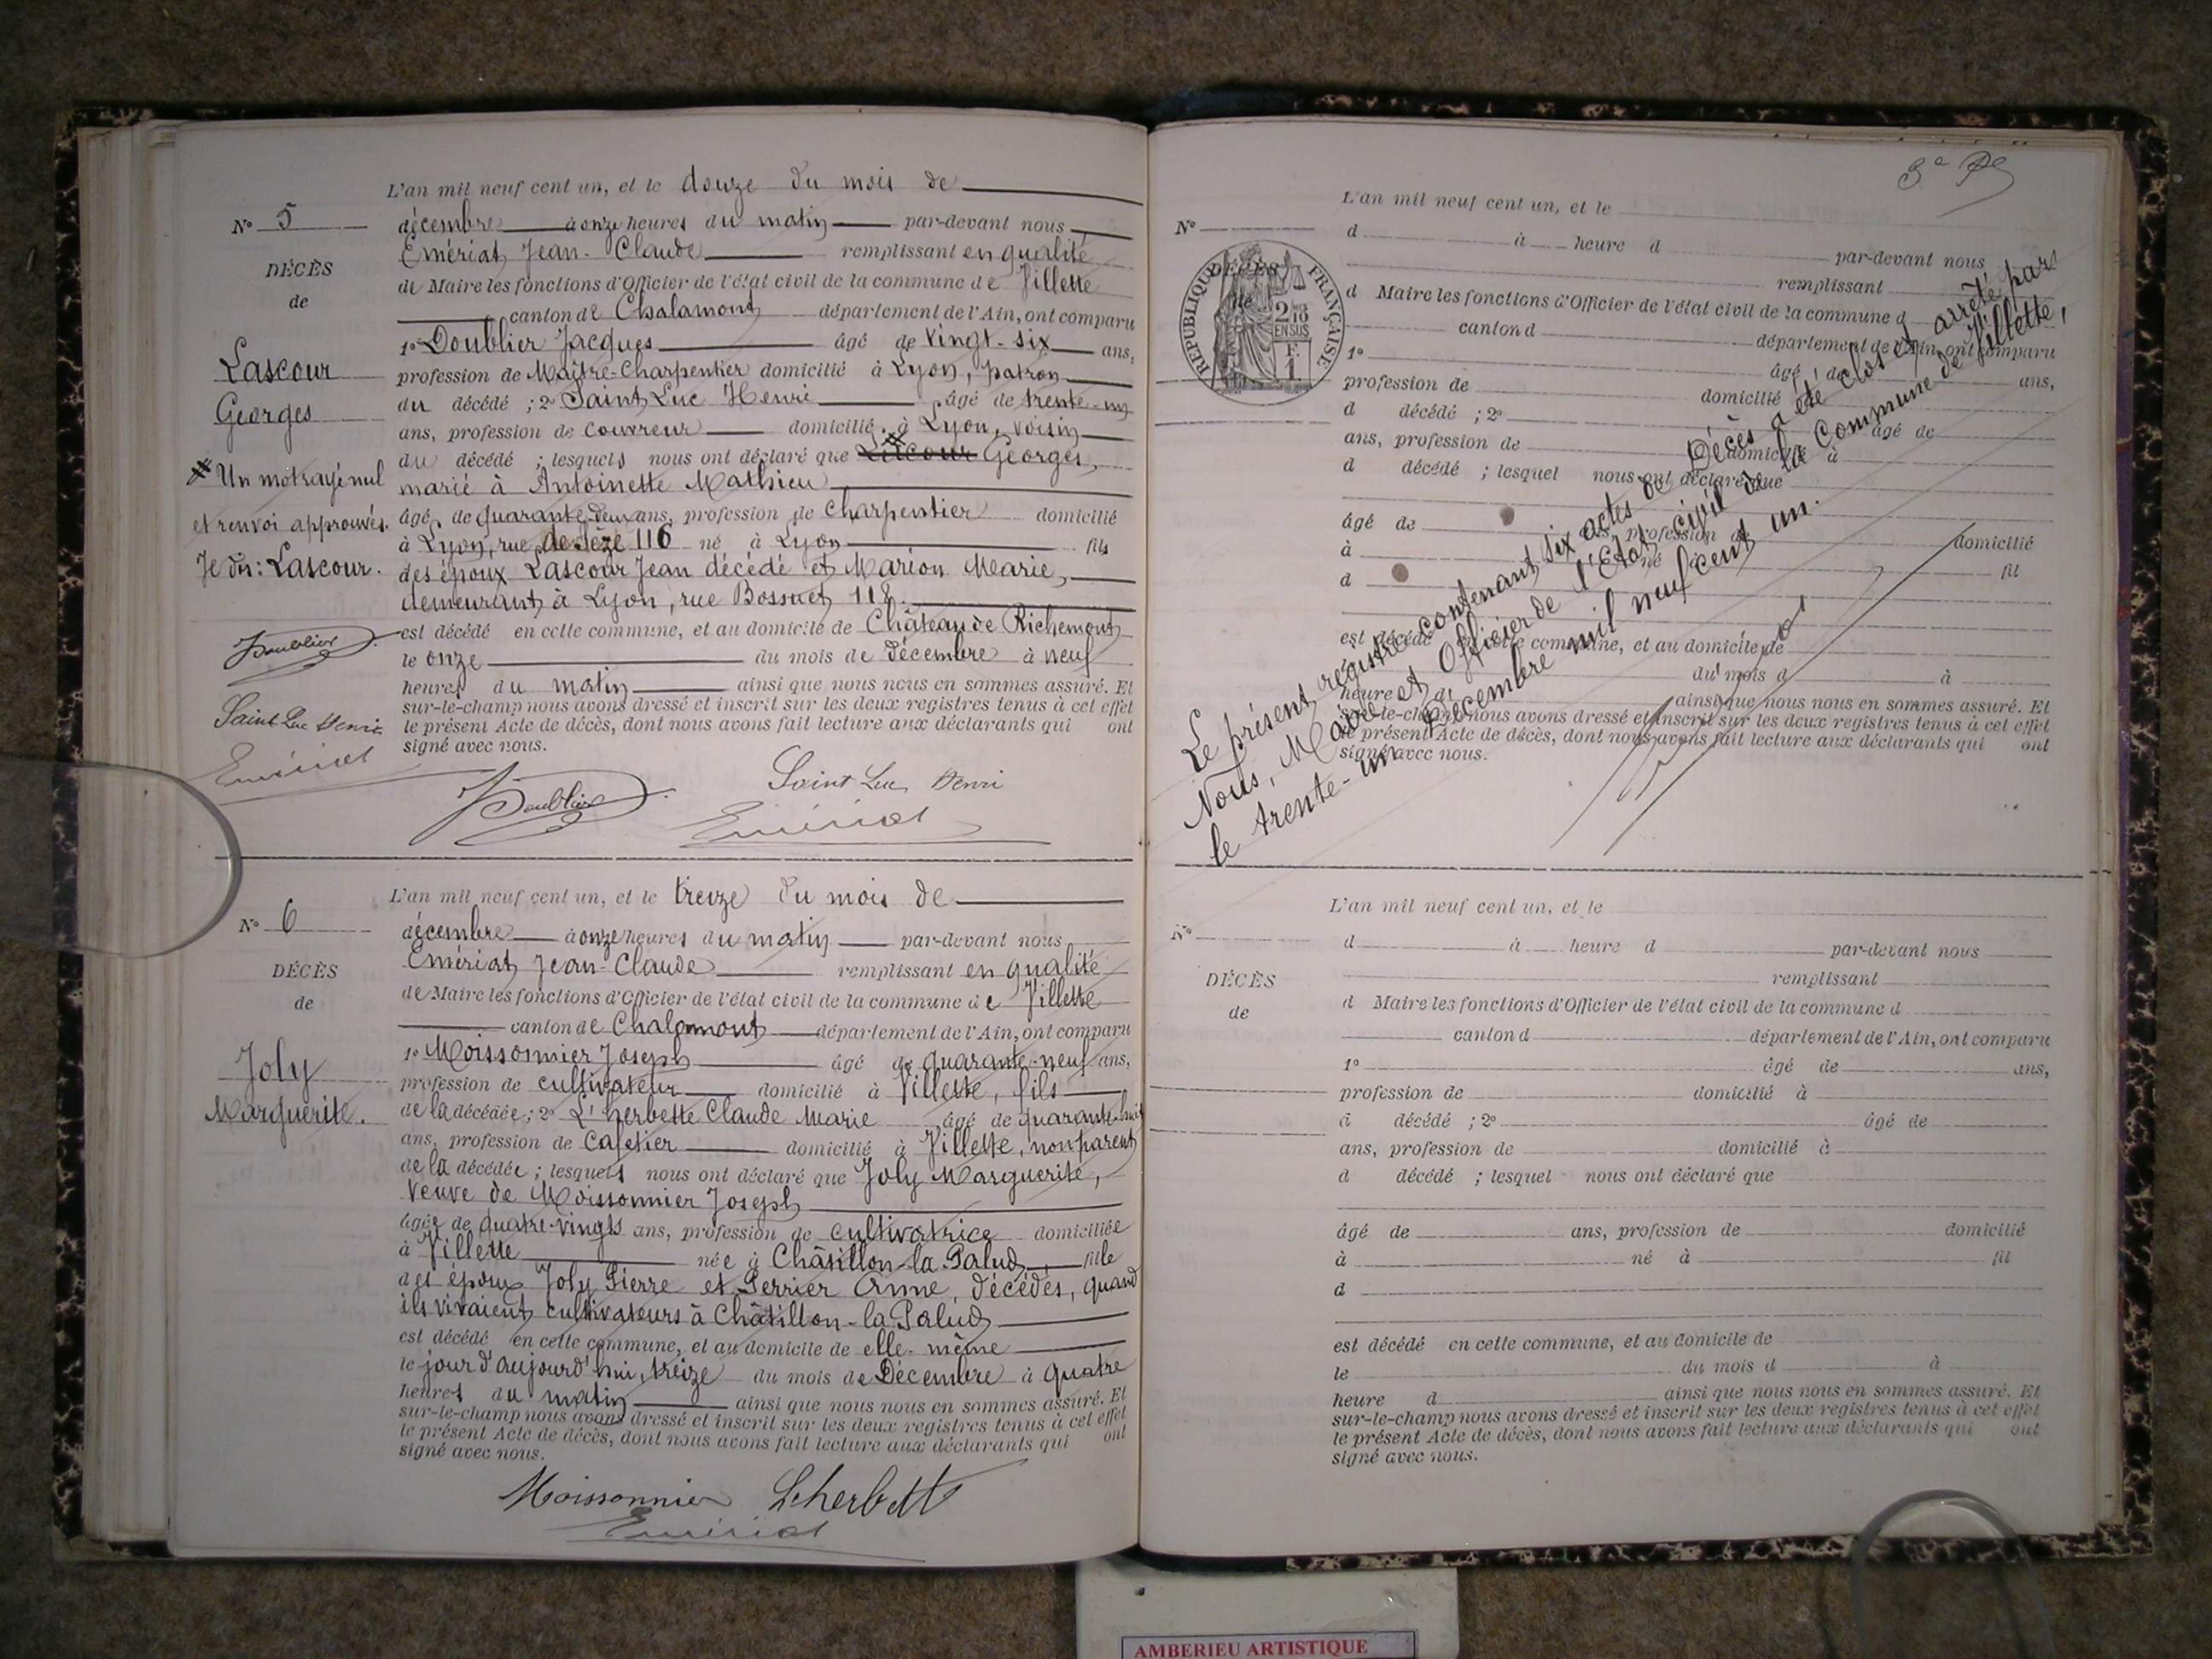 L'an mil neuf cent un, et le douze du mois de
N° 5
décembre à onze heures du matin par-devant nous
Emériat Jean-Claude remplissant en qualité
DÉCÈS
de Maire les fonctions d'Officier de l'état civil de la commune de Villette
de
canton de Chalamont département de l'Ain, ont comparu
1° Doublier Jacques âgé de vingt-six ans,
Lascour
profession de Maître-Charpentier domicilié à Lyon, patron
Georges
du décédé ; 2° Saint Luc Henri âgé de trente-un
ans, profession de couvreur domicilié à Lyon, voisin
du décédé ; lesquels nous ont déclaré que Georges,
Un mot rayé nul
marié à Antoinette Mathieu
et renvoi approuvés.
âgé de quarante-deux ans, profession de charpentier domicilié
à Lyon, rue de Sèze 116 né à Lyon fils
Je dis : Lascour.
des époux Lascour Jean décédé et Marion Marie,
demeurant à Lyon, rue Bossuet 118.
est décédé en cette commune, et au domicile de Château de Richemont
Doublier
le onze du mois de décembre à neuf
heures du matin ainsi que nous nous en sommes assuré. Et
sur-le-champ nous avons dressé et inscrit sur les deux registres tenus à cet effet
Saint Luc Henri
le présent Acte de décès, dont nous avons fait lecture aux déclarants qui ont
signé avec nous.
Emériat
JDoublier
Saint Luc Henri
Emériat
L'an mil neuf cent un, et le treize du mois de
N° 6
décembre à onze heures du matin par-devant nous
Emériat Jean-Claude remplissant en qualité
DÉCÈS
de Maire les fonctions d'Officier de l'état civil de la commune de Villette
de
canton de Chalamont département de l'Ain, ont comparu
1° Moissonnier Joseph âgé de quarante-neuf ans,
Joly
profession de cultivateur domicilié à Villette, fils
Marguerite.
de la décédée ; 2° L'herbette Claude Marie âgé de quarante-huit
ans, profession de Cafetier domicilié à Villette, non parent
de la décédée ; lesquels nous ont déclaré que Joly Marguerite,
Veuve de Moissonnier Joseph
âgée de quatre-vingts ans, profession de cultivatrice domiciliée
à Villette née à Châtillon-la-Palud, fille
des époux Joly Pierre et Perrier Anne, décédés, quand
ils vivaient cultivateurs à Châtillon-la-Palud
est décédé en cette commune, et au domicile de elle-même
le jour d'aujourd'hui, treize du mois de Décembre à quatre
heures du matin ainsi que nous nous en sommes assuré. Et
sur-le-champ nous avons dressé et inscrit sur les deux registres tenus à cet effet
le présent Acte de décès, dont nous avons fait lecture aux déclarants qui ont
signé avec nous.
Moissonnier Lherbette
Emériat
L'an mil neuf cent un, et le
N°
d à heure d par-devant nous
remplissant
DÉCÈS
de
RÉPUBLIQUE FRANÇAISE
2/10 EN SUS
F. 1
d Maire les fonctions d'Officier de l'état civil de la commune d
canton d département de l'Ain, ont comparu
1° âgé de ans,
profession de domicilié
d décédé ; 2° âgé de
ans, profession de domicilié à
d décédé ; lesquel nous ont déclaré que
âgé de ans, profession de domicilié
à né à fil
d
est décédé en cette commune, et au domicile de
du mois d à
heure d ainsi que nous nous en sommes assuré. Et
sur-le-champ nous avons dressé et inscrit sur les deux registres tenus à cet effet
le présent Acte de décès, dont nous avons fait lecture aux déclarants qui ont
signé avec nous.
Le présent registre contenant six actes de Décès a été clos et arrêté par
Nous, Maire et Officier de l'Etat civil de la Commune de Villette,
le trente-un Décembre mil neuf cent un.
L'an mil neuf cent un, et le
N°
d à heure d par-devant nous
DÉCÈS
remplissant
de
d Maire les fonctions d'Officier de l'état civil de la commune d
canton d département de l'Ain, ont comparu
1° âgé de ans,
profession de domicilié à
d décédé ; 2° âgé de
ans, profession de domicilié à
d décédé ; lesquel nous ont déclaré que
âgé de ans, profession de domicilié
à né à fil
d
est décédé en cette commune, et au domicile de
le du mois d à
heure d ainsi que nous nous en sommes assuré. Et
sur-le-champ nous avons dressé et inscrit sur les deux registres tenus à cet effet
le présent Acte de décès, dont nous avons fait lecture aux déclarants qui ont
signé avec nous.
AMBERIEU ARTISTIQUE